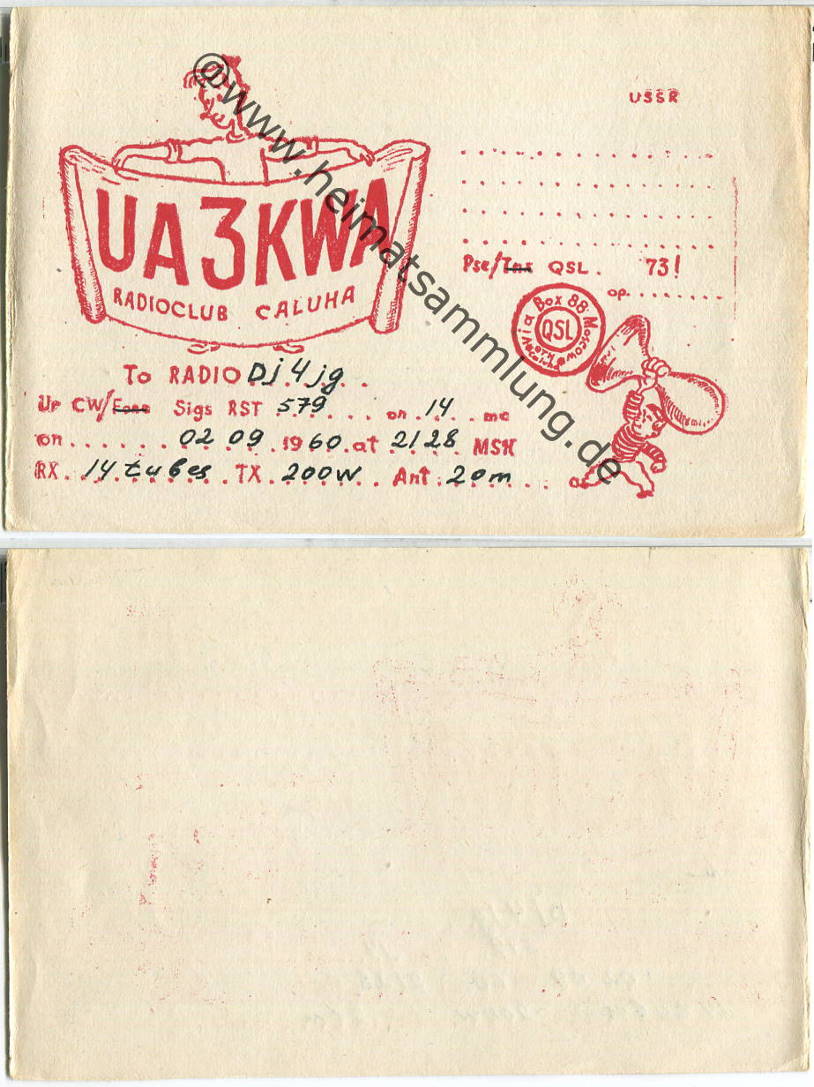 USSR
UA3KWA
RADIOCLUB CALUHA
Pse/Tnx QSL. 73!
op.
via Box 88 Moscow
QSL
To RADIO Dj4jg
Ur CW/Fone Sigs RST 579 on 14 mc
on 02 09 1960 at 2128 MSK
RX. 14 tubes TX. 200w Ant. 20m
@www.heimatsammlung.de